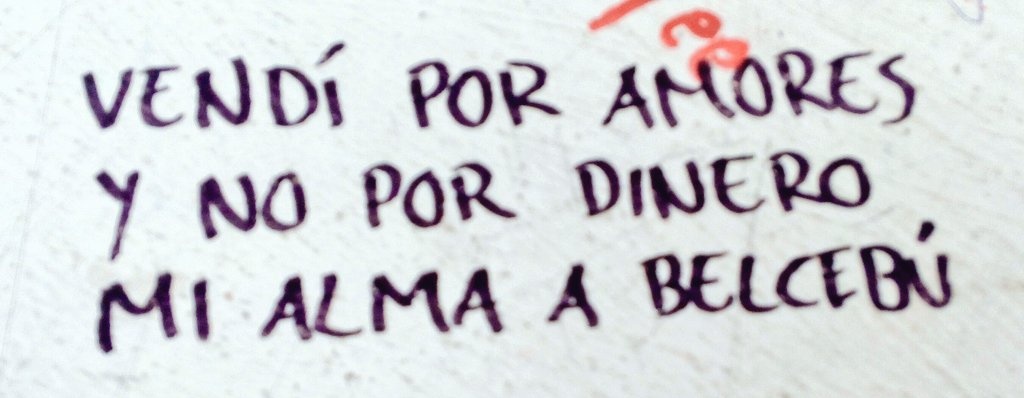 VENDÍ POR AMORES
Y NO POR DINERO
MI ALMA A BELCEBÚ